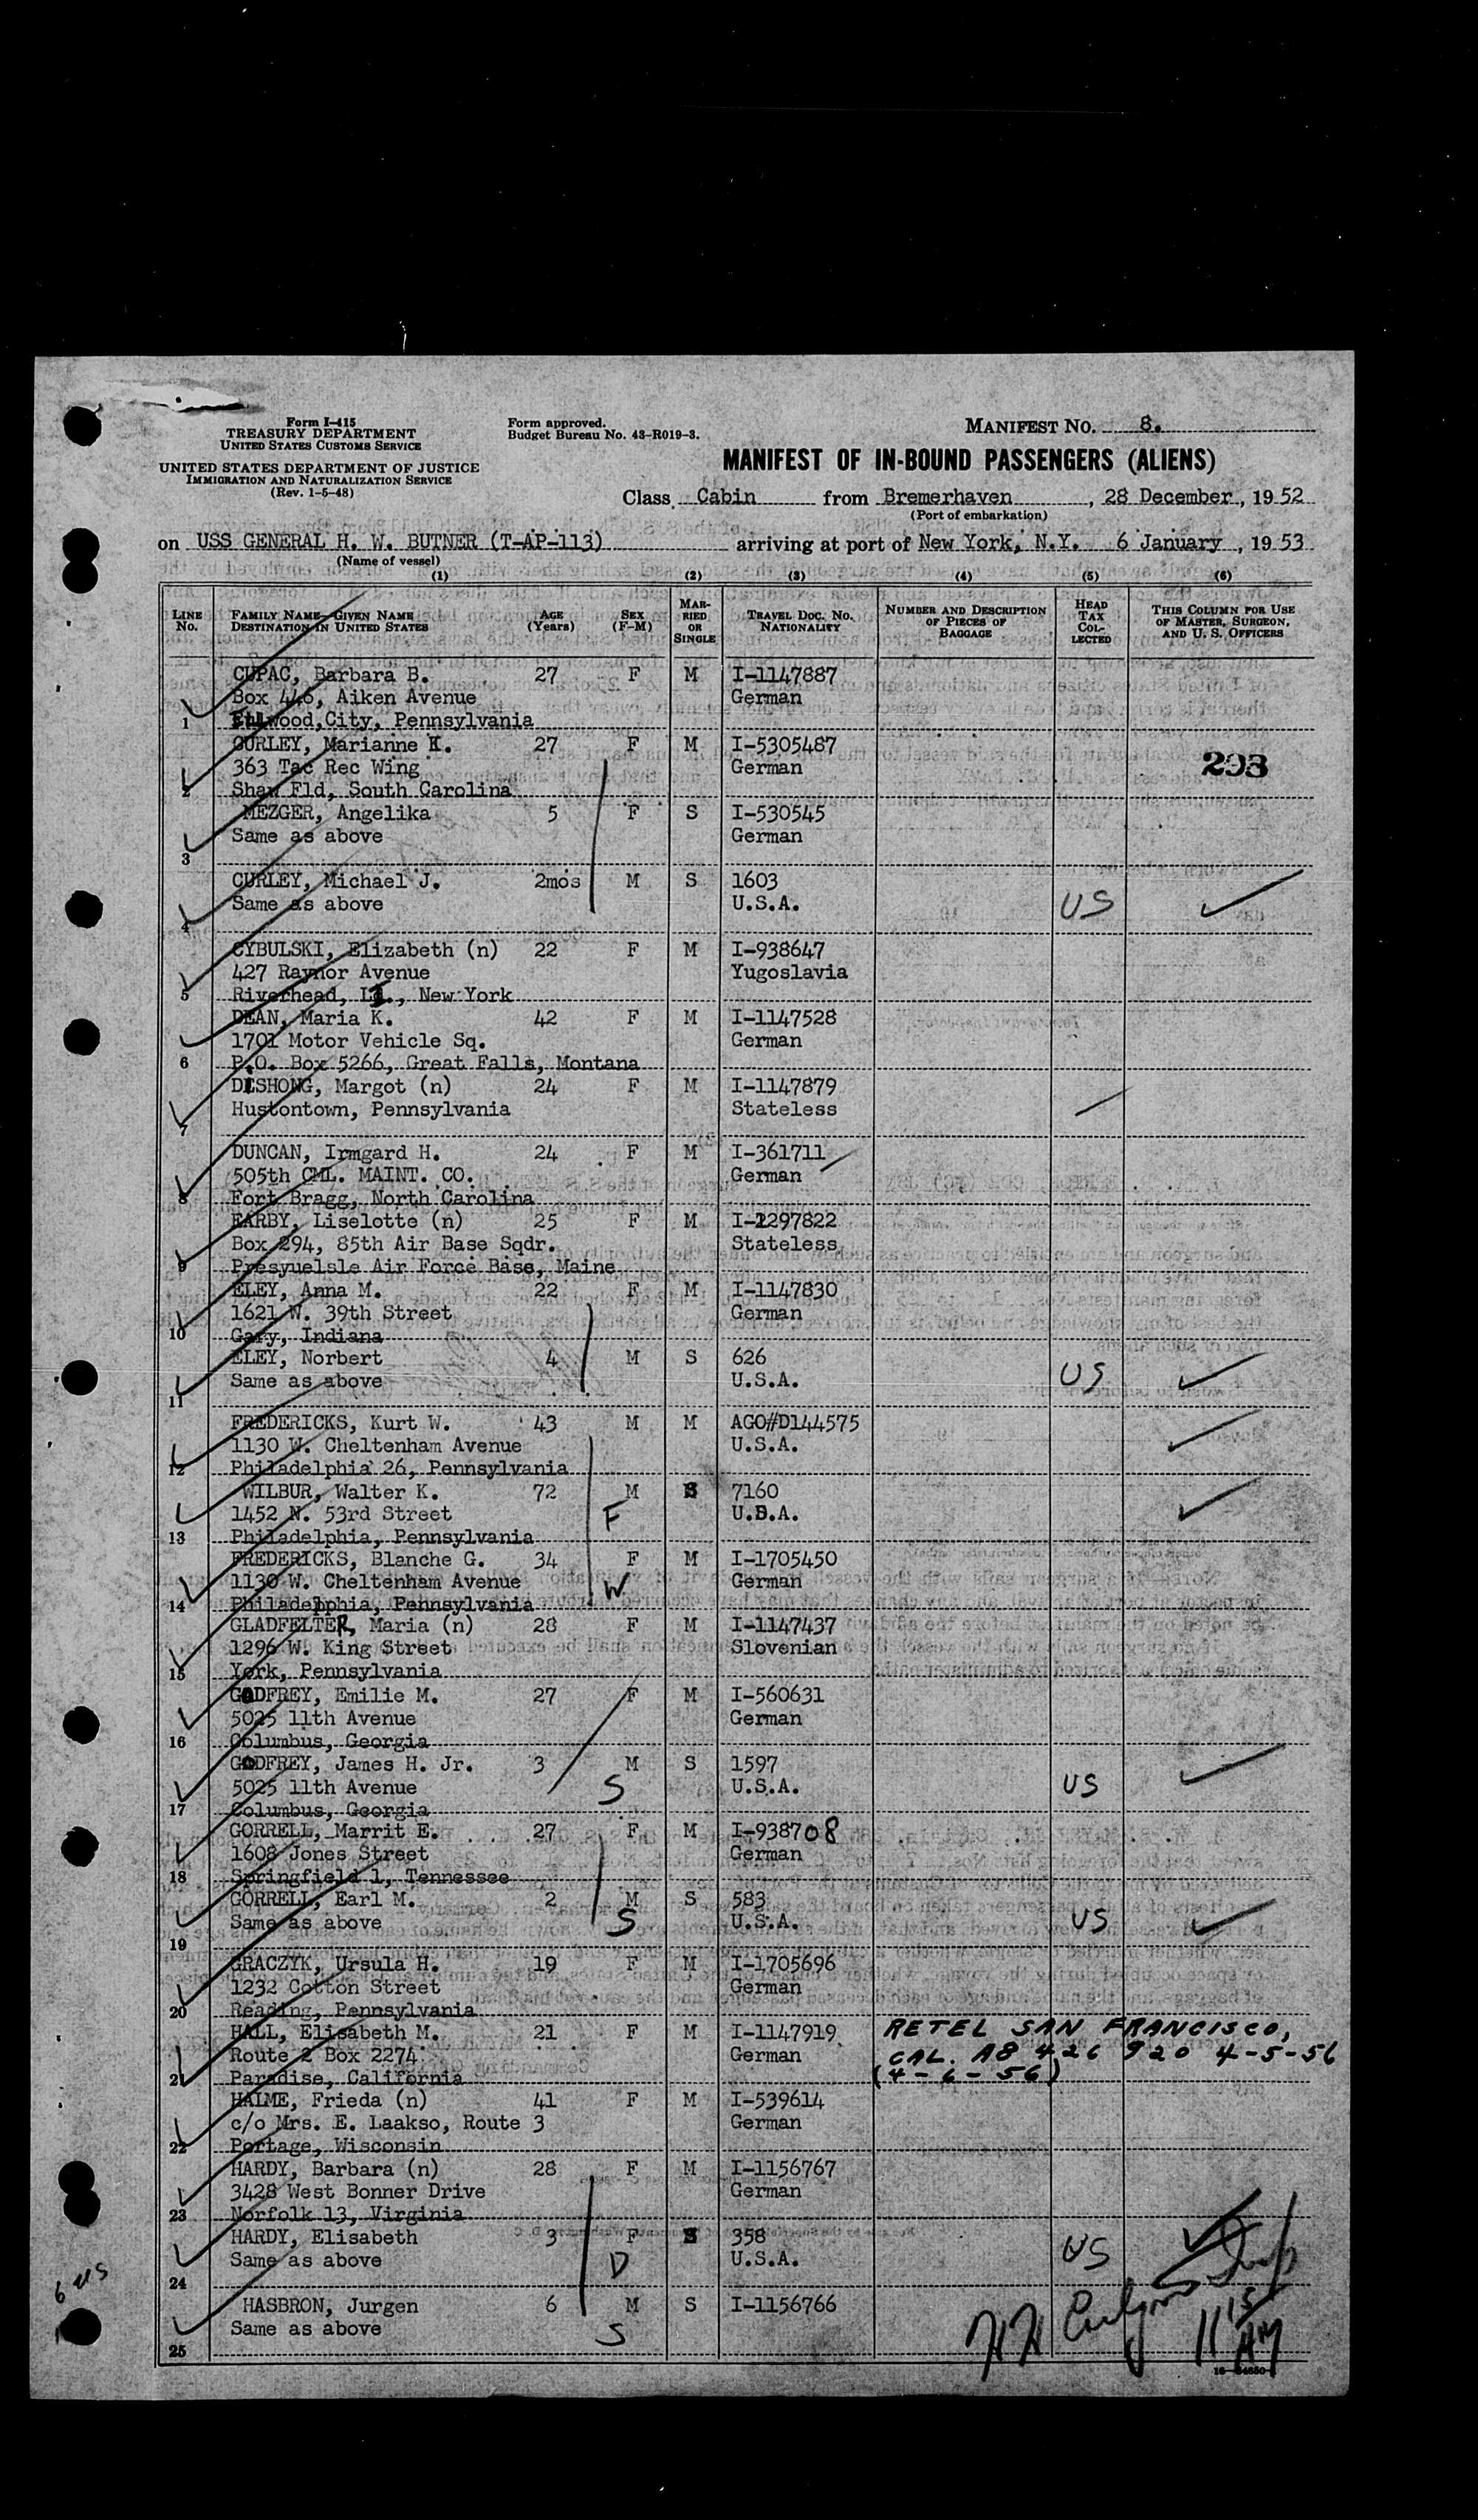 Form I-415
TREASURY DEPARTMENT
UNITED STATES CUSTOMS SERVICE
UNITED STATES DEPARTMENT OF JUSTICE
IMMIGRATION AND NATURALIZATION SERVICE
(Rev. 1-5-48)
Form approved.
Budget Bureau No. 43-R019-3.
MANIFEST NO. 8.
MANIFEST OF IN-BOUND PASSENGERS (ALIENS)
Class Cabin from Bremerhaven, 28 December, 1952
(Port of embarkation)
on USS GENERAL H. W. BUTNER (T-AP-113) arriving at port of New York, N.Y. 6 January, 1953
(Name of vessel)
(1) (2) (3) (4) (5) (6)
LINE No. FAMILY NAME—GIVEN NAME DESTINATION IN UNITED STATES AGE (Years) SEX (F-M) MARRIED OR SINGLE TRAVEL DOC. NO. NATIONALITY NUMBER AND DESCRIPTION OF PIECES OF BAGGAGE HEAD TAX COLLECTED THIS COLUMN FOR USE OF MASTER, SURGEON, AND U. S. OFFICERS
CUPAC, Barbara B. 27 F M I-1147887
Box 446, Aiken Avenue German
1 Ellwood City, Pennsylvania
CURLEY, Marianne K. 27 F M I-5305487
363 Tac Rec Wing German 293
2 Shaw Fld, South Carolina
MEZGER, Angelika 5 F S I-530545
Same as above German
3
CURLEY, Michael J. 2mos M S 1603
Same as above U.S.A. US
4
CYBULSKI, Elizabeth (n) 22 F M I-938647
427 Raynor Avenue Yugoslavia
5 Riverhead, LI., New York
DEAN, Maria K. 42 F M I-1147528
1701 Motor Vehicle Sq. German
6 P.O. Box 5266, Great Falls, Montana
DISHONG, Margot (n) 24 F M I-1147879
Hustontown, Pennsylvania Stateless
7
DUNCAN, Irmgard H. 24 F M I-361711
505th CML. MAINT. CO. German
8 Fort Bragg, North Carolina
EARBY, Liselotte (n) 25 F M I-1297822
Box 294, 85th Air Base Sqdr. Stateless
9 Presyuelsle Air Force Base, Maine
ELEY, Anna M. 22 F M I-1147830
1621 W. 39th Street German
10 Gary, Indiana
ELEY, Norbert 4 M S 626
Same as above U.S.A. US
11
FREDERICKS, Kurt W. 43 M M AGO#D144575
1130 W. Cheltenham Avenue U.S.A.
12 Philadelphia 26, Pennsylvania
WILBUR, Walter K. 72 M S 7160
1452 N. 53rd Street F U.S.A.
13 Philadelphia, Pennsylvania
FREDERICKS, Blanche G. 34 F M I-1705450
1130 W. Cheltenham Avenue W German
14 Philadephhia, Pennsylvania
GLADFELTER, Maria (n) 28 F M I-1147437
1296 W. King Street Slovenian
15 York, Pennsylvania
GODFREY, Emilie M. 27 F M I-560631
5025 11th Avenue German
16 Columbus, Georgia
GODFREY, James H. Jr. 3 M S 1597
5025 11th Avenue S U.S.A. US
17 Columbus, Georgia
GORRELL, Marrit E. 27 F M I-938708
1608 Jones Street German
18 Springfield 1, Tennessee
GORRELL, Earl M. 2 M S 583
Same as above S U.S.A. US
19
GRACZYK, Ursula H. 19 F M I-1705696
1232 Cotton Street German
20 Reading, Pennsylvania
HALL, Elisabeth M. 21 F M I-1147919 RETEL SAN FRANCISCO,
Route 2 Box 2274 German CAL. A8 426 920 4-5-56
21 Paradise, California (4-6-56)
HALME, Frieda (n) 41 F M I-539614
c/o Mrs. E. Laakso, Route 3 German
22 Portage, Wisconsin
HARDY, Barbara (n) 28 F M I-1156767
3428 West Bonner Drive German
23 Norfolk 13, Virginia
HARDY, Elisabeth 3 F S 358
Same as above D U.S.A. US
24
HASBRON, Jurgen 6 M S I-1156766
Same as above S
25
6 US
11 15 AM